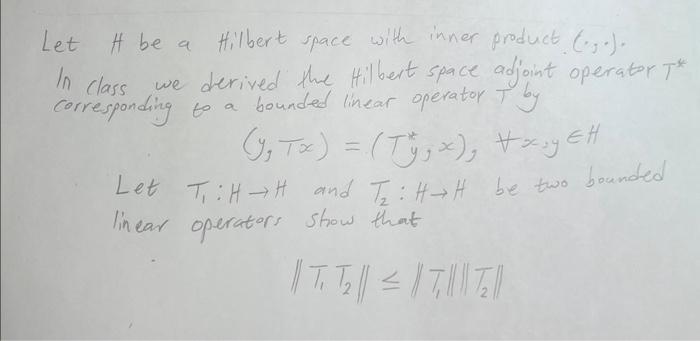 Let H be a Hilbert space with inner product (·,·).
In class we derived the Hilbert space adjoint operator T*
corresponding to a bounded linear operator T by
(y, Tx) = (T*y, x), ∀x,y ∈ H
Let T₁: H → H and T₂: H → H be two bounded
linear operators show that
‖T₁T₂‖ ≤ ‖T₁‖‖T₂‖